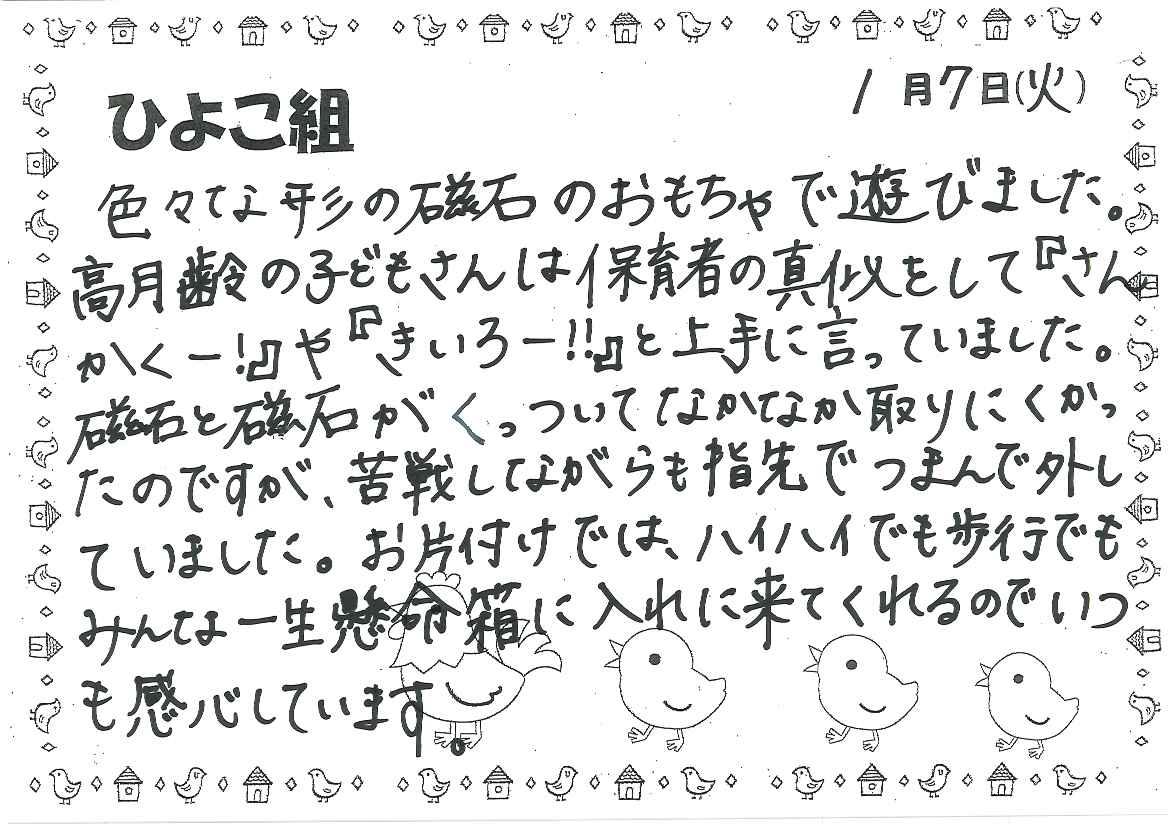 1月7日(火)
ひよこ組
色々な形の磁石のおもちゃで遊びました。
高月齢の子どもさんは保育者の真似をして『さん
かくー!』や『きいろー!!』と上手に言っていました。
磁石と磁石がくっついてなかなか取りにくかっ
たのですが、苦戦しながらも指先でつまんで外し
ていました。お片付けでは、ハイハイでも歩行でも
みんな一生懸命箱に入れに来てくれるのでいつ
も感心しています。